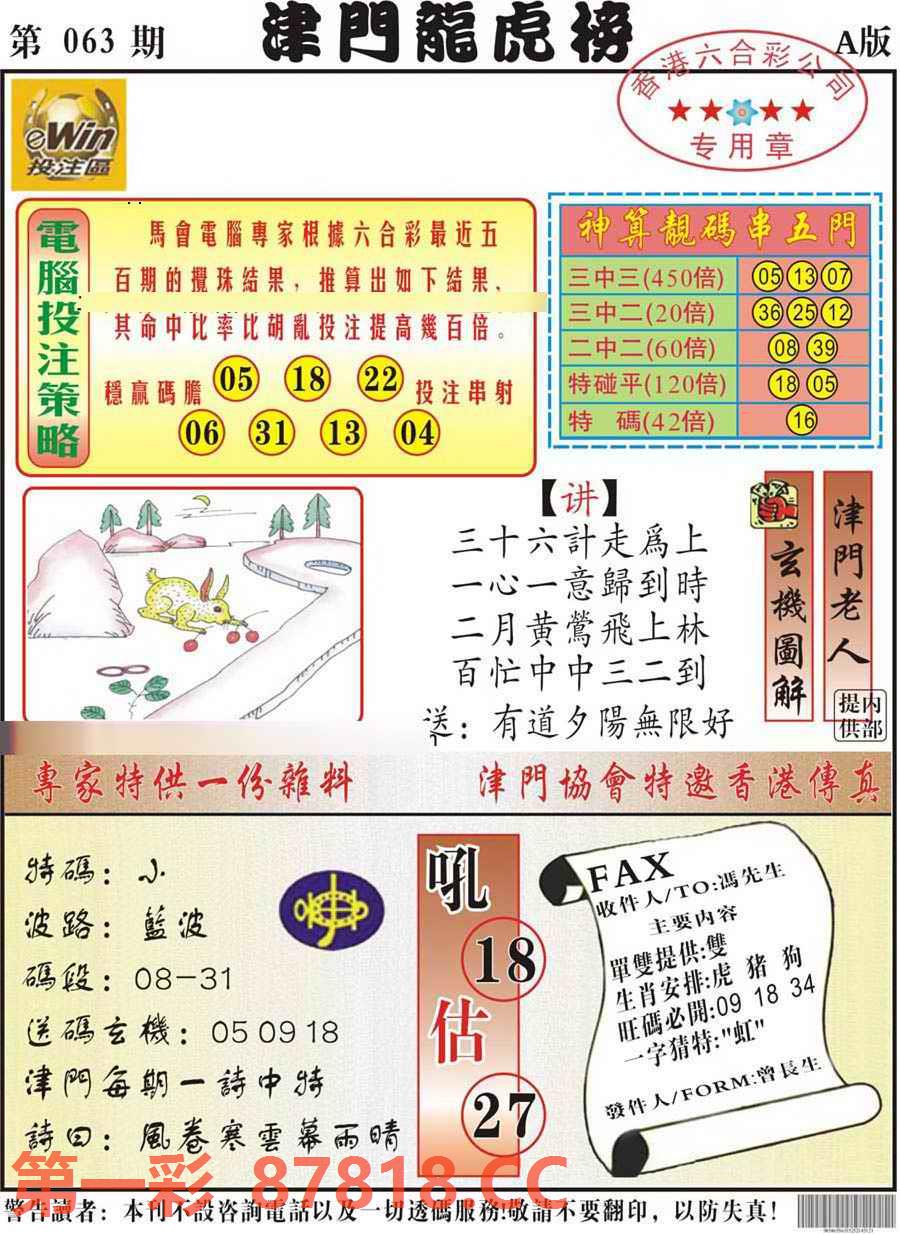 第 063 期
津門龍虎榜
A版
香港六合彩公司
专用章
eWin
投注區
電腦投注策略
馬會電腦專家根據六合彩最近五
百期的攪珠結果，推算出如下結果，
其命中比率比胡亂投注提高幾百倍。
穩贏碼膽 05 18 22 投注串射
06 31 13 04
神算靚碼串五門
三中三(450倍) 05 13 07
三中二(20倍) 36 25 12
二中二(60倍) 08 39
特碰平(120倍) 18 05
特 碼(42倍) 16
【讲】
三十六計走爲上
一心一意歸到時
二月黄鶯飛上林
百忙中中三二到
送：有道夕陽無限好
玄機圖解
津門老人
内部提供
專家特供一份雜料
津門協會特邀香港傳真
特碼：小
波路：藍波
碼段：08-31
送碼玄機：05 09 18
津門每期一詩中特
詩曰：風卷寒雲幕雨晴
吼
18
估
27
FAX
收件人/TO:馮先生
主要内容
單雙提供:雙
生肖安排:虎 猪 狗
旺碼必開:09 18 34
一字猜特:"虹"
發件人/FORM:曾長生
第一彩 87818.CC
警告讀者：本刊不設咨詢電話以及一切透碼服務!敬請不要翻印，以防失真！